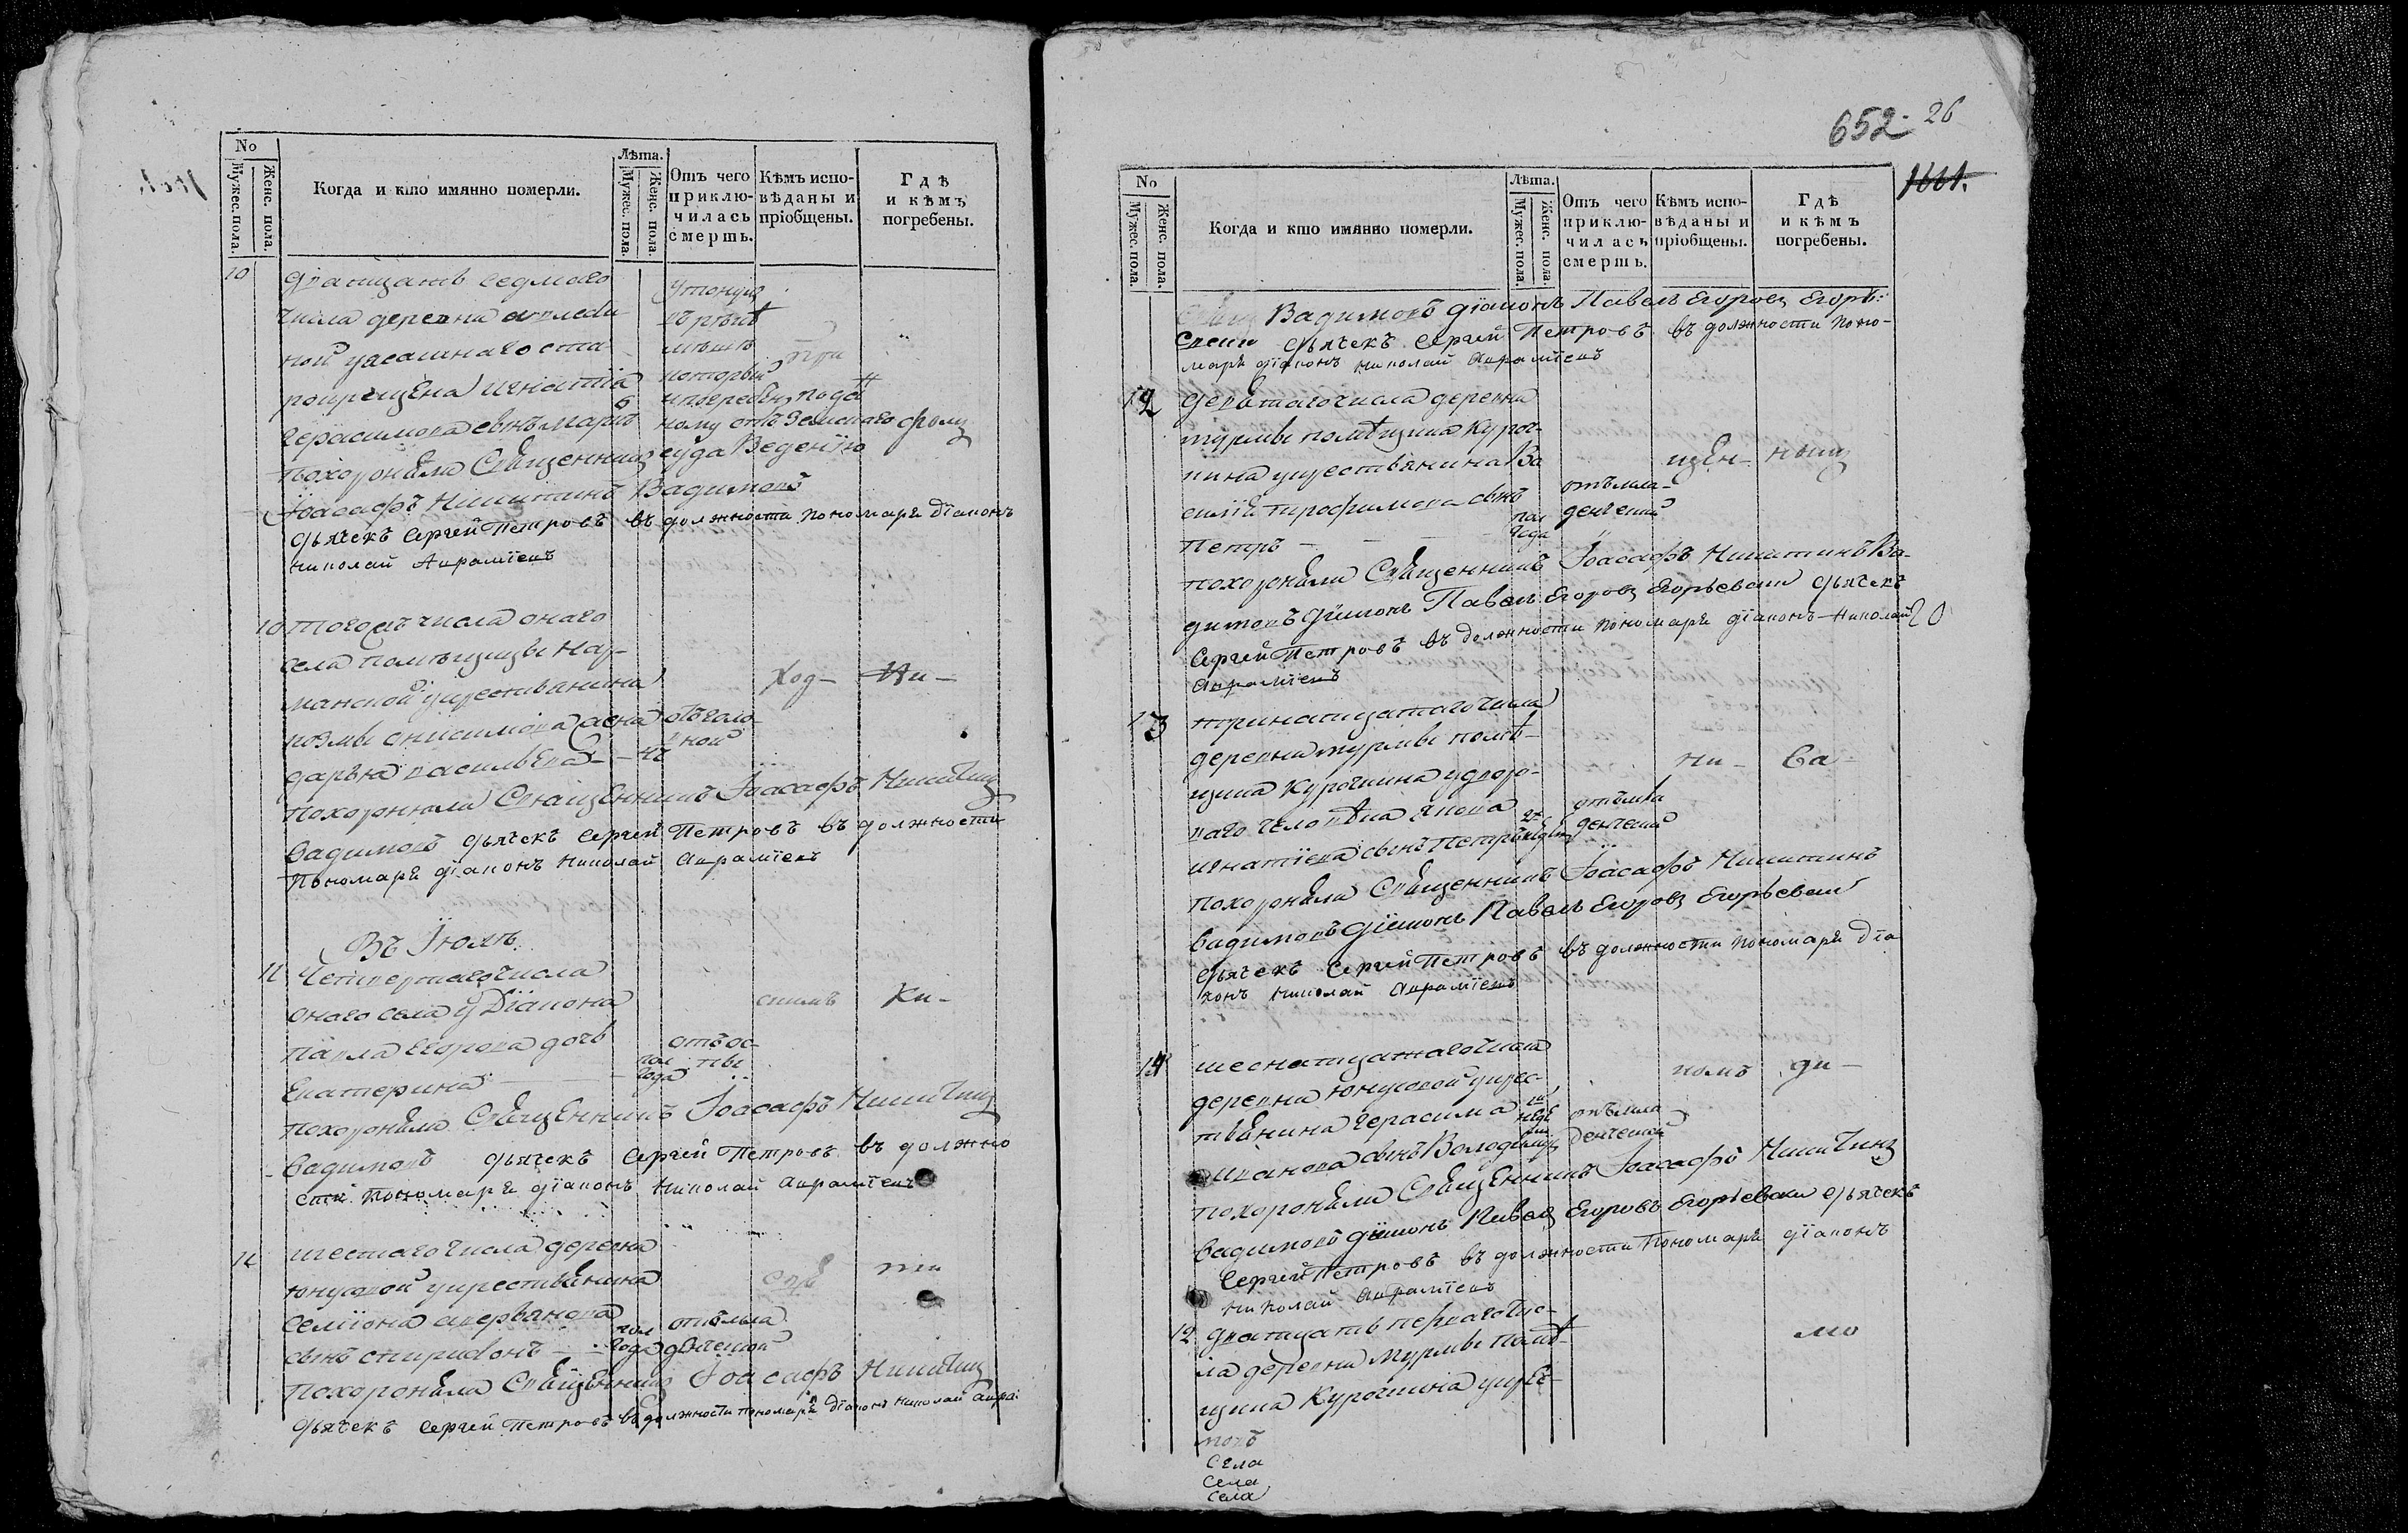 No
Мужес. пола.
Женс. пола.
Когда и кто имянно померли.
Лѣта.
Мужес. пола.
Женс. пола
Отъ чего приклю-
чилась смерть.
Кѣмъ испо-
вѣданы и
пріобщены.
Гдѣ
и кѣмъ
погребены.
10
дватцать седмаго
утонулъ
числа деревни
въ рѣкѣ
мѣшѣ
который
Игнатія
Герасимова сынъ маркъ 6
ному отъ Земскаго
похоронили Священникъ суда Веденію
Іоасафъ Никитинъ Вадимовъ
дьячекъ Сергей Петровъ въ должности пономаря діаконъ
николай Авраміевъ
10 тогожъ числа онаго
села помѣщицы Нар-
манской укрестьянина
ход- Ни-
козмы онисимова жена
дарья васильева
похоронили Священникъ Іоасафъ Никитинъ
вадимовъ дьячекъ Сергей Петровъ въ должности
пономаря діаконъ николай авраміевъ
Въ Іюлѣ
11 Четвертаго числа
онаго села у Діакона
скимъ Ки-
павла егорова дочь
отъ ос-
пы
Екатерина пол года
похоронили Священникъ Іоасафъ Никитинъ
вадимовъ дьячекъ Сергей Петровъ въ должно
сти пономаря діаконъ николай авраміевъ
11 шестаго числа деревни
юнусовой укрестьянина
свя ти
семіона аверьянова
сынъ спиридонъ пол года отъ мла
денческой
похоронили Священникъ Іоасафъ Никитинъ
дьячекъ Сергей Петровъ въ должности пономаря діаконъ николай авра:
652. 26
1661.
No
Мужес. пола.
Женс. пола.
Когда и кто имянно померли.
Лѣта.
Мужес. пола.
Женс. пола.
Отъ чего приклю-
чилась смерть.
Кѣмъ испо-
вѣданы и
пріобщены.
Гдѣ
и кѣмъ
погребены.
Вадимовъ діаконъ Павелъ Егоровъ Егорь-
евски дьячекъ Сергей Петровъ въ должности поно-
маря діаконъ николай авраміевъ
12 девятаго числа деревни
турмы помѣщика Куроч-
кина укрестьянина Ва
щен- нымъ
силія трофимова сынъ
отъ мла-
денческой
Петръ пол года
похоронили Священникъ Іоасафъ Никитинъ Ва-
димовъ діаконъ Павелъ Егоровъ Егорьевски дьячекъ
Сергей Петровъ въ должности пономаря діаконъ николай
авраміевъ
13 тринатцатаго числа
деревни турмы помѣ-
щика Курочкина удворо-
ни- ва-
ваго человѣка якова
игнатіева сынъ Петръ
отъ мла
денческой
похоронили Священникъ Іоасафъ Никитинъ
вадимовъ діаконъ Павелъ Егоровъ Егорьевски
дьячекъ Сергей Петровъ въ должности пономаря діа
конъ николай авраміевъ
14 шеснатцатаго числа
деревни юнусовой укрес-
комъ ди-
тьянина герасима
иванова сынъ Володимеръ
отъ мла
денческой
похоронили Священникъ Іоасафъ Никитинъ
вадимовъ діаконъ Павелъ Егоровъ Егорьевски дьячекъ
Сергей Петровъ въ должности пономаря діаконъ
николай авраміевъ
12 дватцать перваго чис-
ла деревни турмы помѣ-
мо
щика Курочкина укрес-
мовъ
села
села
села